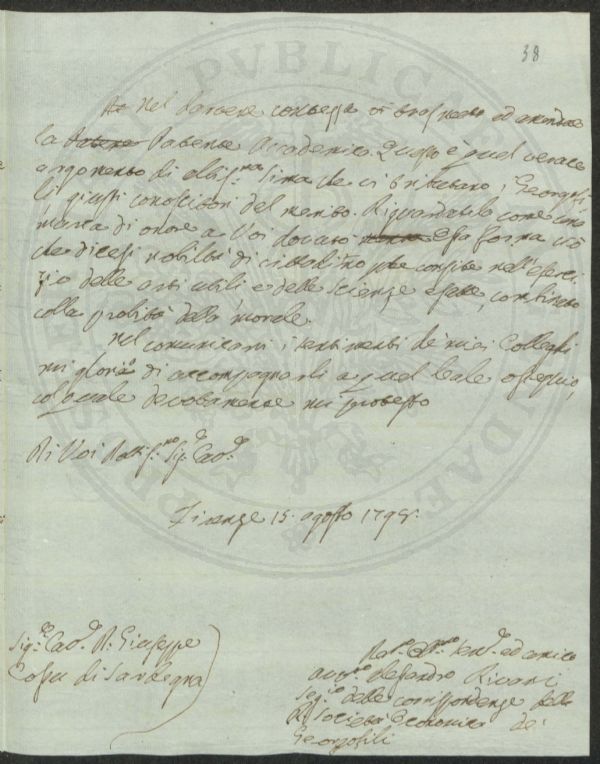 38
Nel darvene contezza vi trasmetto ed
la Patente Accademica. Questo è quel verace
argomento di altis.ma stima che vi tributano i Georgofili
giusti conoscitori del merito. Riguardatela come una
marca di onore a Voi dovuto Essa forma ciò
che dicesi nobiltà di cittadino che consiste nell'eserci-
zio delle arti utili e delle scienze esatte, combinato
colla probità della morale.
Nel comunicarvi i sentimenti de' miei Colleghi
mi glorio di accompagnarli a quel leale ossequio,
col quale devotamente mi protesto
Di Voi Sig.e Cav.e
Firenze 15. agosto 1795.
Sig.e Cav.e D. Giuseppe
Cossu di Sardegna
Dev.mo Serv.e ed amico
Alessandro Rivani
Seg.rio delle corrispondenze della
R. Società Economica de'
Georgofili
PUBLICAE